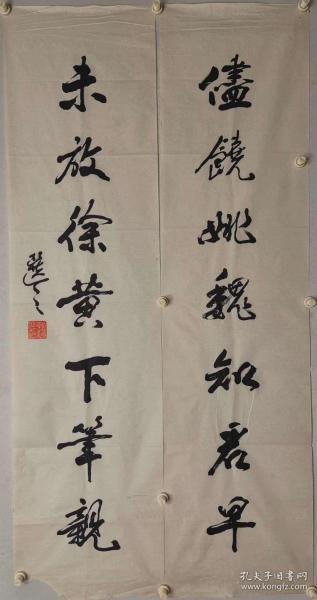 儘饒姚魏知君早
未放徐黄下筆親
選之
孔夫子旧书网
www.kongfz.com